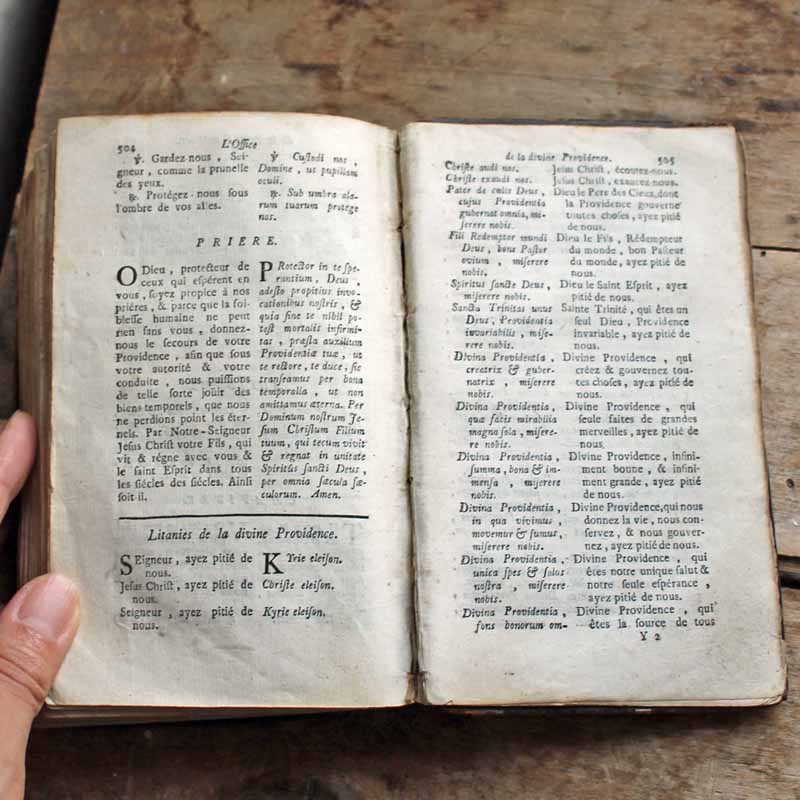 504 L'Office
℣. Gardez-nous, Sei-
gneur, comme la prunelle
des yeux.
℟. Protégez-nous sous
l'ombre de vos aîles.
℣ Cuſtodi nos,
Domine, ut pupillam
oculi.
℟. Sub umbra ala-
rum tuarum protege
nos.
PRIERE.
O Dieu, protecteur de
ceux qui eſpérent en
vous, ſoyez propice à nos
priéres, & parce que la foi-
bleſſe humaine ne peut
rien ſans vous, donnez-
nous le ſecours de votre
Providence, afin que ſous
votre autorité & votre
conduite, nous puiſſions
de telle ſorte joüir des
biens temporels, que nous
ne perdions point les éter-
nels. Par Notre-Seigneur
Jeſus Chriſt votre Fils, qui
vit & régne avec vous &
le ſaint Eſprit dans tous
les ſiécles des ſiécles. Ainſi
ſoit il.
PRotector in te ſpe-
rantium, Deus,
adeſto propitius invo-
cationibus noſtris, &
quia ſine te nihil po-
teſt mortalis infirmi-
tas, præſta auxilium
Providentiæ tuæ, ut
te rectore, te duce, ſic
tranſeamus per bona
temporalia, ut non
amittamus æterna. Per
Dominum noſtrum Je-
ſum Chriſtum Filium
tuum, qui tecum vivit
& regnat in unitate
Spiritûs ſancti Deus,
per omnia ſæcula ſæ-
culorum. Amen.
Litanies de la divine Providence.
SEigneur, ayez pitié de
nous.
Jeſus Chriſt, ayez pitié de
nous.
Seigneur, ayez pitié de
nous.
KYrie eleiſon.
Chriſte eleiſon.
Kyrie eleiſon.
de la divine Providence. 505
Chriſte audi nos.
Chriſte exaudi nos.
Pater de cælis Deus,
cujus Providentia
gubernat omnia, mi-
ſerere nobis.
Fili Redemptor mundi
Deus, bone Paſtor
ovium, miſerere
nobis.
Spiritus ſancte Deus,
miſerere nobis.
Sancta Trinitas unus
Deus, Providentia
invariabilis, miſe-
rere nobis.
Divina Providentia,
creatrix & guber-
natrix, miſerere
nobis.
Divina Providentia,
quæ facis mirabilia
magna ſola, miſere-
re nobis.
Divina Providentia,
ſumma, bona & im-
menſa, miſerere
nobis.
Divina Providentia,
in qua vivimus,
movemur & ſumus,
miſerere nobis.
Divina Providentia,
unica ſpes & ſalus
noſtra, miſerere
nobis.
Divina Providentia,
fons bonorum om-
Jeſus Chriſt, écoutez-nous.
Jeſus Chriſt, exaucez-nous.
Dieu le Pere des Cieux, dont
la Providence gouverne
toutes choſes, ayez pitié
de nous.
Dieu le Fils, Rédempteur
du monde, bon Paſteur
du monde, ayez pitié de
nous.
Dieu le Saint Eſprit, ayez
pitié de nous.
Sainte Trinité, qui êtes un
ſeul Dieu, Providence
invariable, ayez pitié de
nous.
Divine Providence, qui
créez & gouvernez tou-
tes choſes, ayez pitié de
nous.
Divine Providence, qui
ſeule faites de grandes
merveilles, ayez pitié de
nous.
Divine Providence, infini-
ment bonne, & infini-
ment grande, ayez pitié
de nous.
Divine Providence, qui nous
donnez la vie, nous con-
ſervez, & nous gouver-
nez, ayez pitié de nous.
Divine Providence, qui
êtes notre unique ſalut &
notre ſeule eſpérance,
ayez pitié de nous.
Divine Providence, qui
êtes la ſource de tous
Y 2